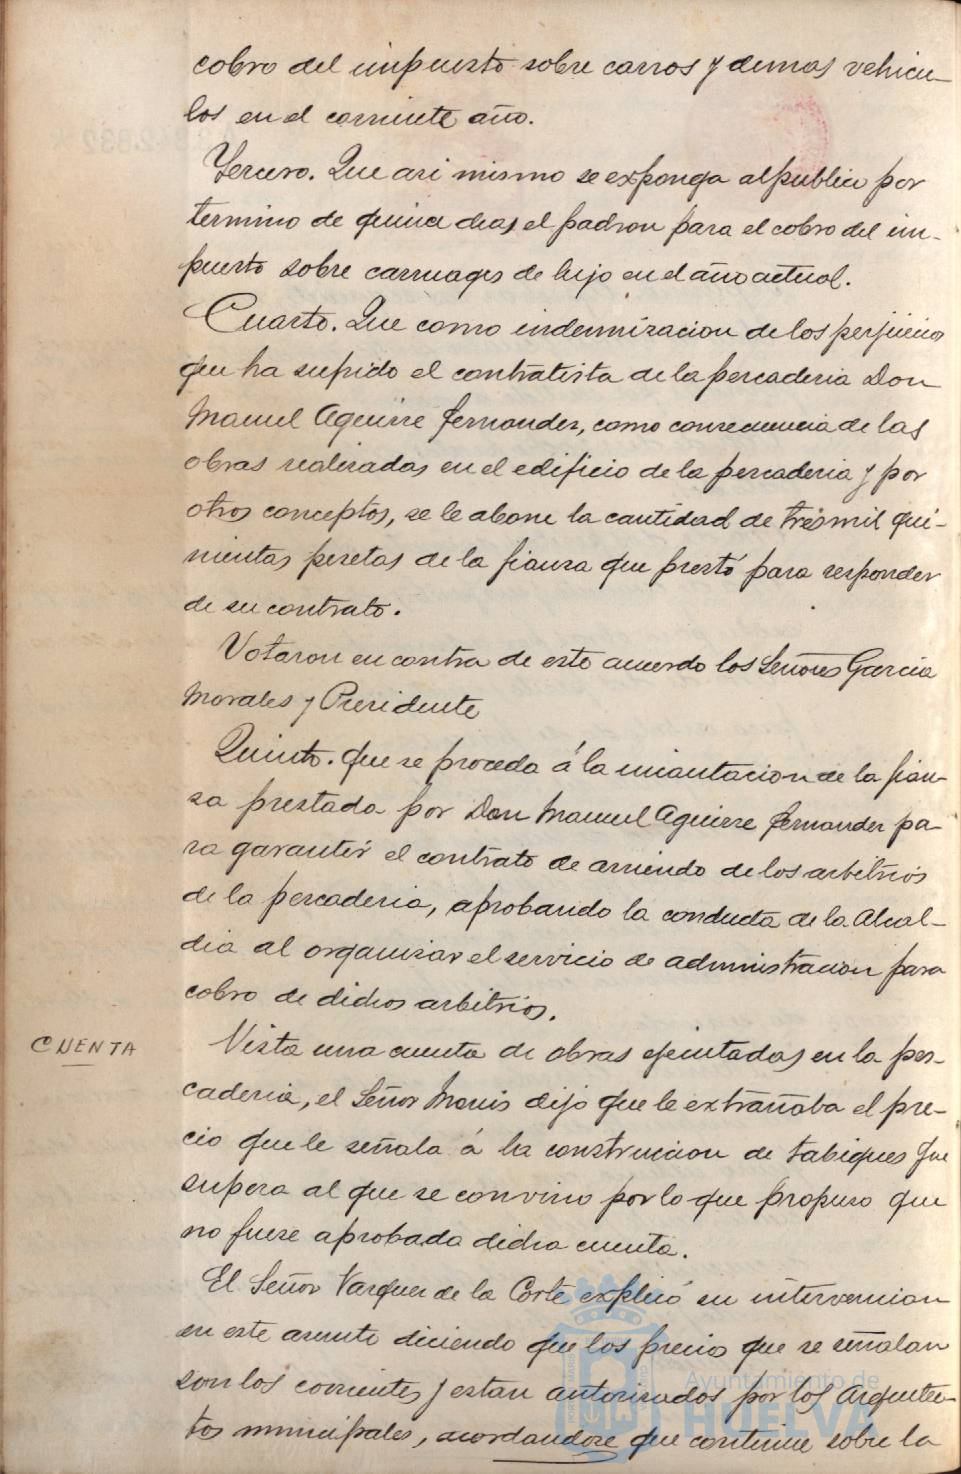 cobro del impuesto sobre carros y demas vehicu-
los en el corriente año.
Tercero. Que asi mismo se exponga al publico por
termino de quince dias el padron para el cobro del im-
puesto sobre carruages de lujo en el año actual.
Cuarto. Que como indemnizacion de los perjuicios
que ha sufrido el contratista de la pescaderia Don
Manuel Aguirre Fernandez, como consecuencia de las
obras realizadas en el edificio de la pescaderia y por
otros conceptos, se le abone la cantidad de tres mil qui-
nientas pesetas de la fianza que prestó para responder
de su contrato.
Votaron en contra de este acuerdo los Señores Garcia
Morales y Presidente
Quinto. que se proceda á la incautacion de la fian-
za prestada por Don Manuel Aguirre Fernandez pa-
ra garantir el contrato de arriendo de los arbitrios
de la pescaderia, aprobando la conducta de la Alcal-
dia al organizar el servicio de administracion para
cobro de dichos arbitrios.
CUENTA
Vista una cuenta de obras ejecutadas en la pes-
caderia, el Señor Monis dijo que le extrañaba el pre-
cio que le señala á la construccion de tabiques que
supera al que se convino por lo que propuso que
no fuese aprobada dicha cuenta.
El Señor Vazquez de la Corte explicó su intervencion
en este asunto diciendo que los precios que se señalan
son los corrientes y estan autorizados por los Arquitec-
tos municipales, acordandose que continue sobre la
Ayuntamiento de
HUELVA